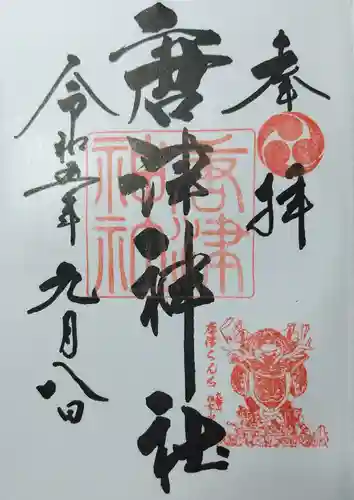 奉拝
唐津神社
令和五年
九月八日
唐津神社
唐津くんち